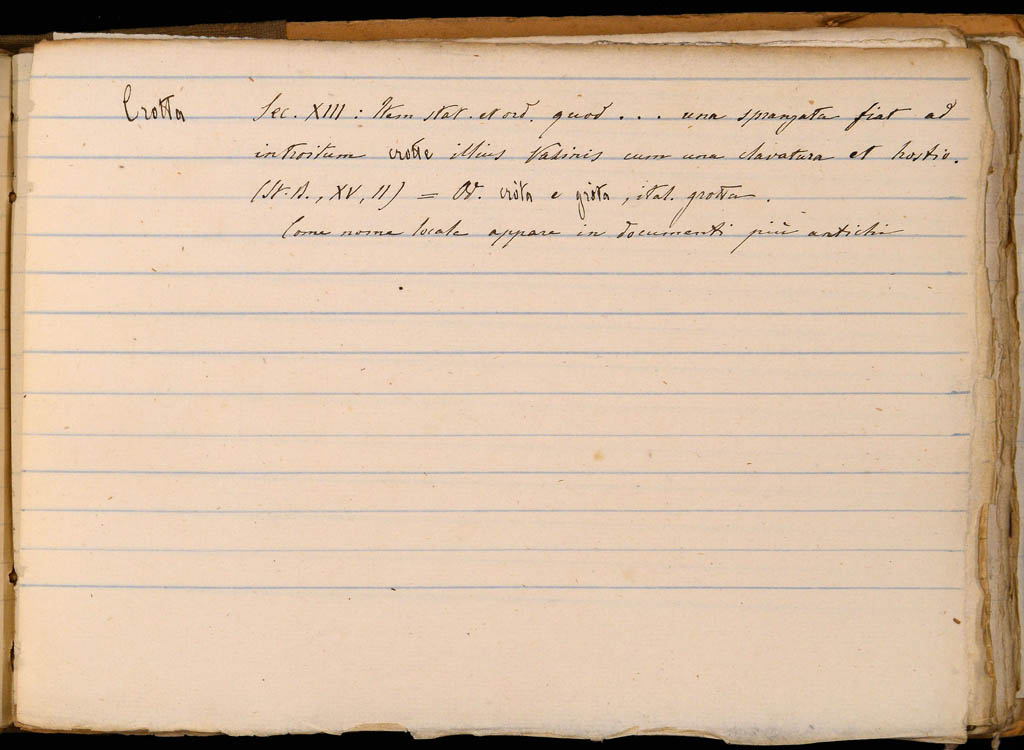 Crotta Sec. XIII : Item stat. et ord. quod . . . una spranzata fiat ad
introitum crotte illius Vadinis cum una clavatura et hostio.
(St. B., XV, 11) = Od. cròta e gròta, ital. grotta.
Come nome locale appare in documenti più antichi